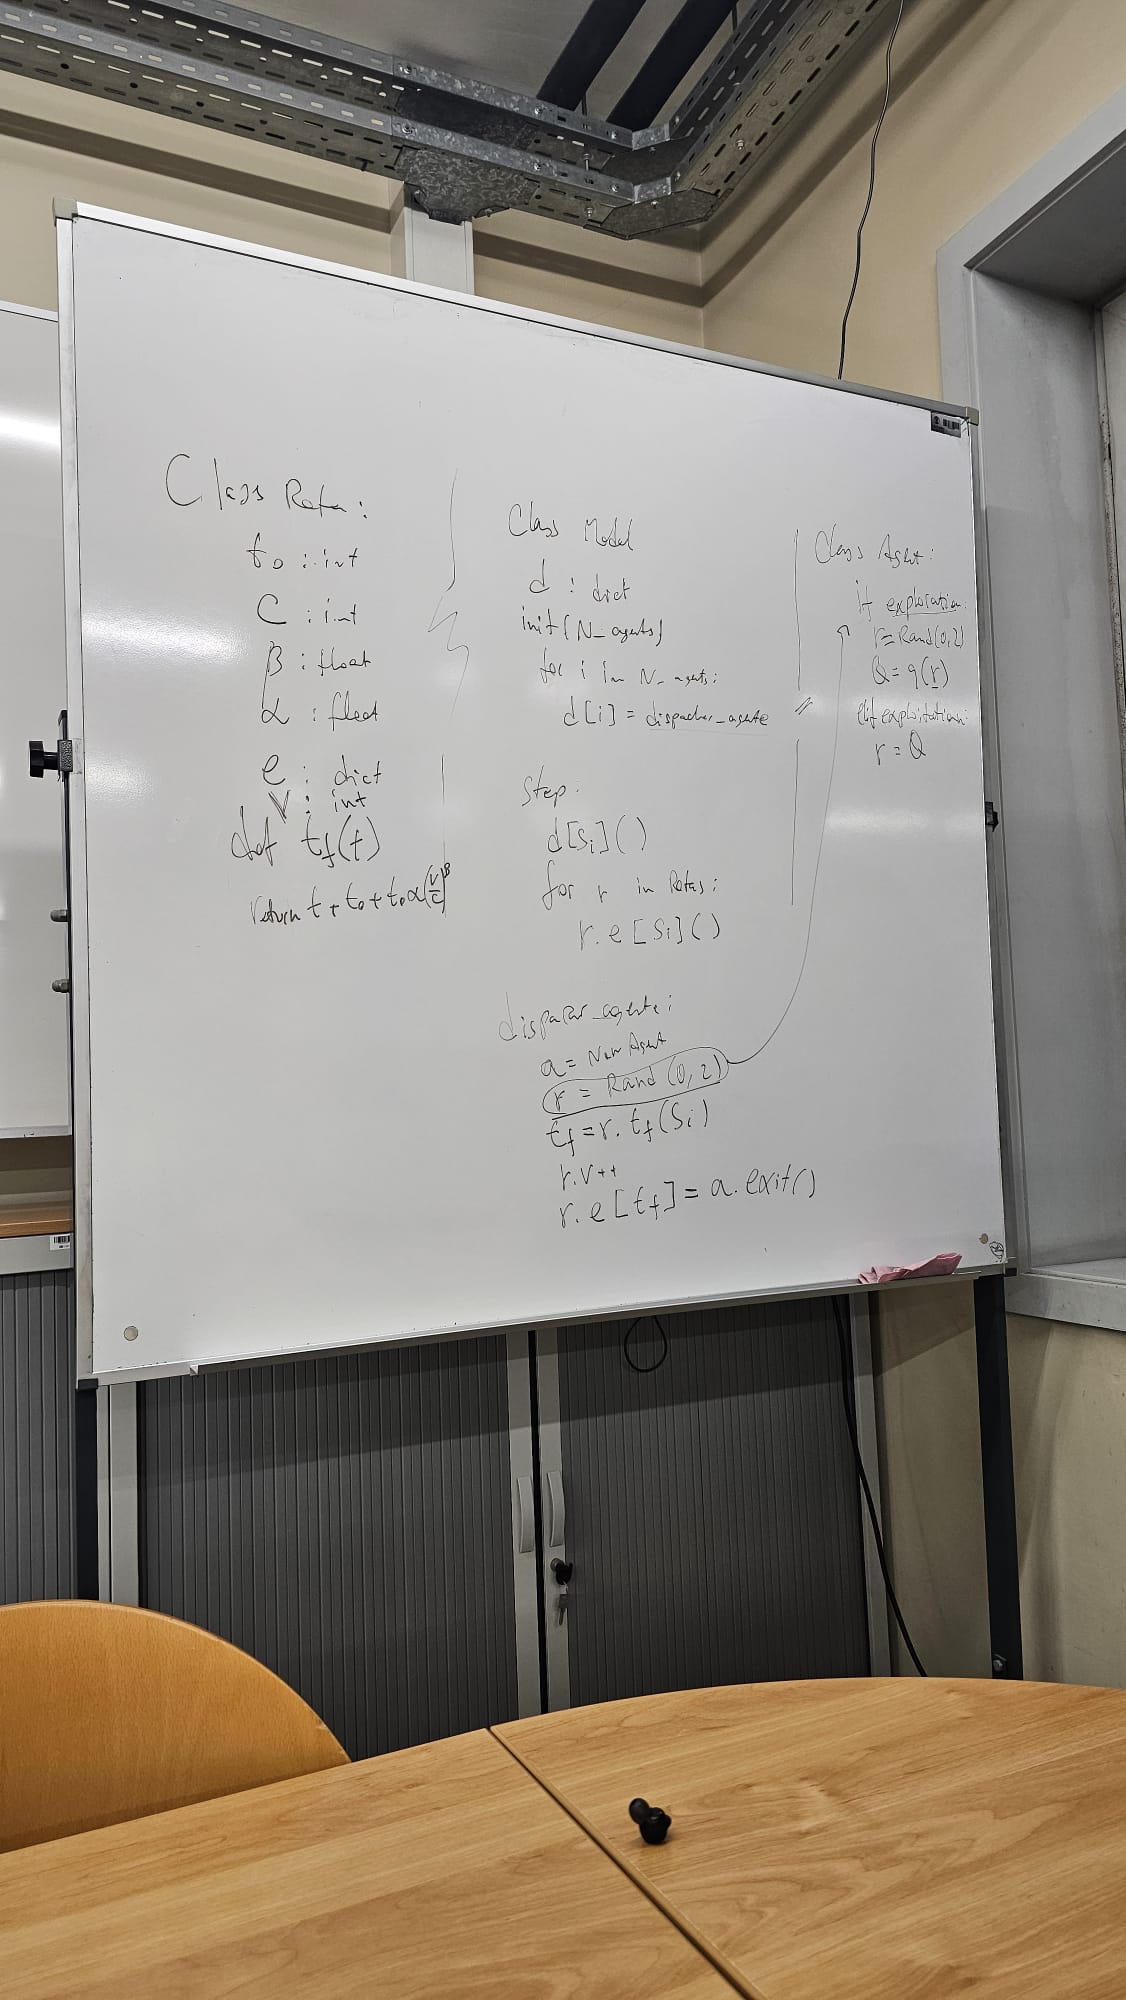 Class Rota:
t₀ : int
C : int
β : float
α : float
e : dict
V : int
def t_f(t)
return t + t₀ + t₀ α (V/C)^β
Class Model
d : dict
init (N_agents)
for i in N_agents:
d[i] = dispachar_agente
Step:
d[Si]()
for r in Rotas:
r.e[Si]()
dispachar_agente:
a = New Agent
r = Rand (0,2)
t_f = r.t_f(Si)
r.v++
r.e[t_f] = a.exit()
Class Agent:
if exploration:
r = Rand(0,2)
Q = q(r)
elif exploitation:
r = Q